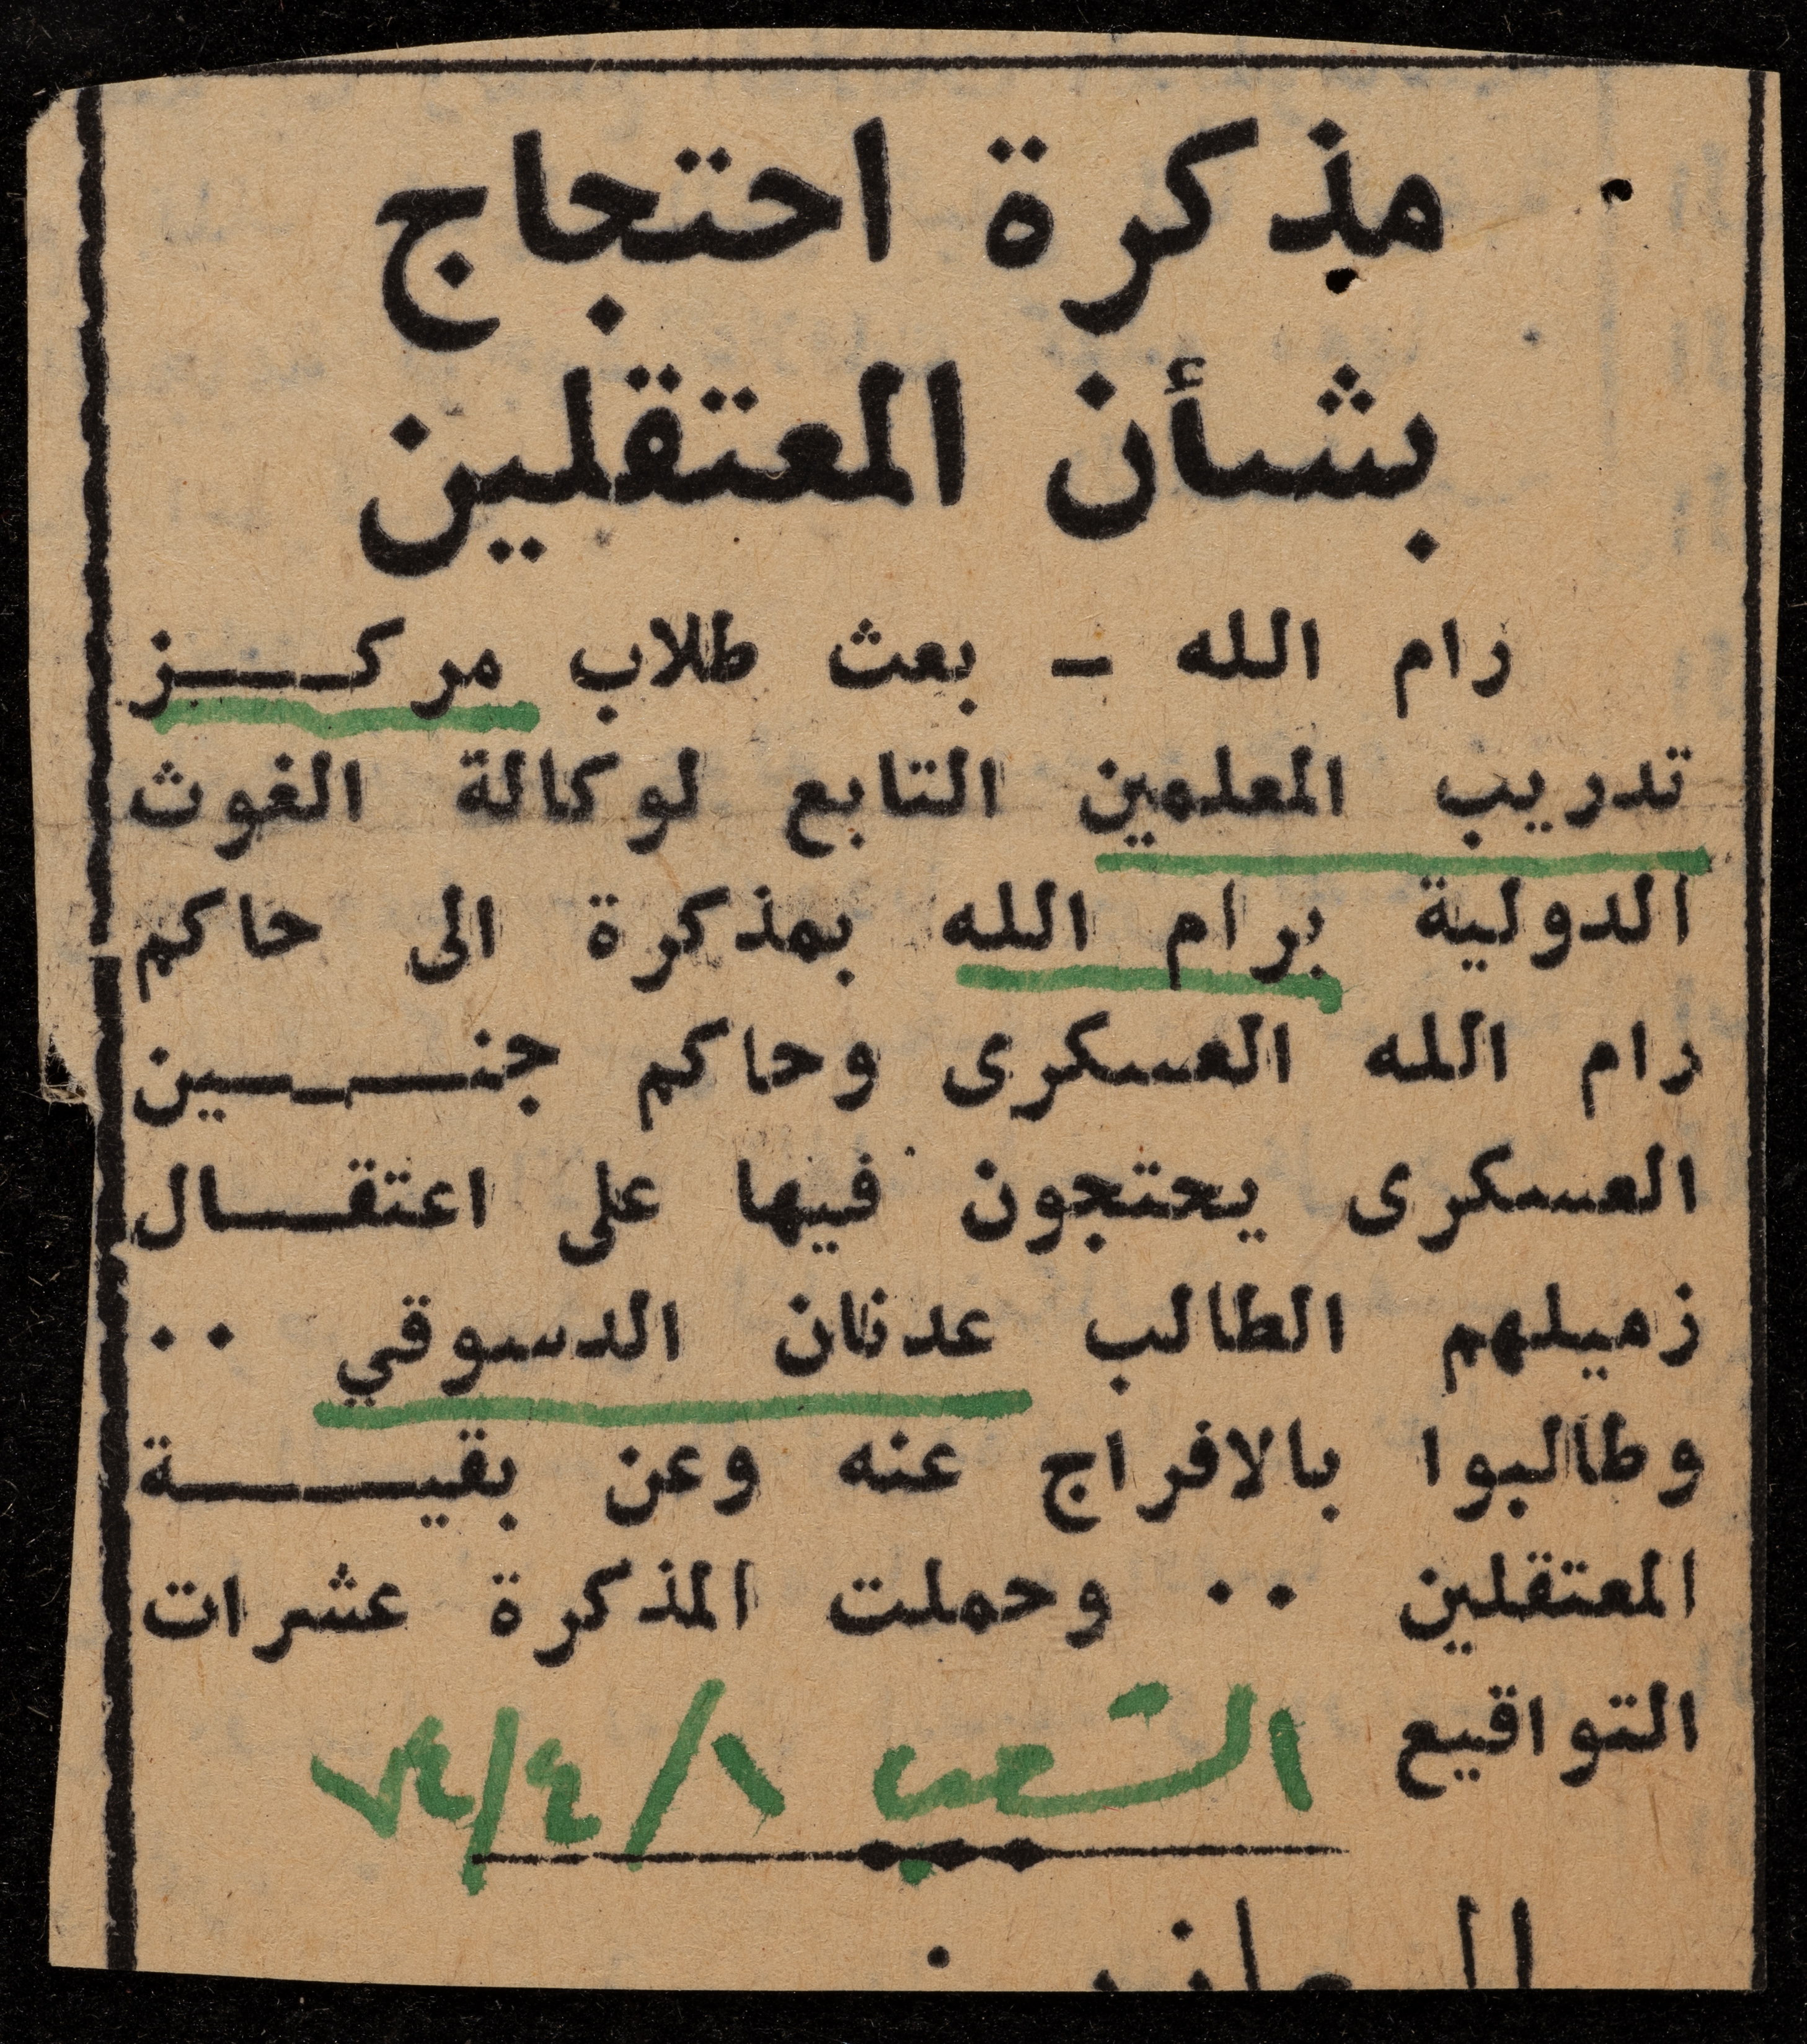 مذكرة احتجاج
بشأن المعتقلين
رام الله - بعث طلاب مركــــز
تدريب المعلمين التابع لوكالة الغوث
الدولية برام الله بمذكرة الى حاكم
رام الله العسكرى وحاكم جنــــين
العسكرى يحتجون فيها على اعتقــال
زميلهم الطالب عدنان الدسوقي ٠٠
وطالبوا بالافراج عنه وعن بقيــــة
المعتقلين ٠٠ وحملت المذكرة عشرات
التواقيع
الشعب ١/٤/٧٤